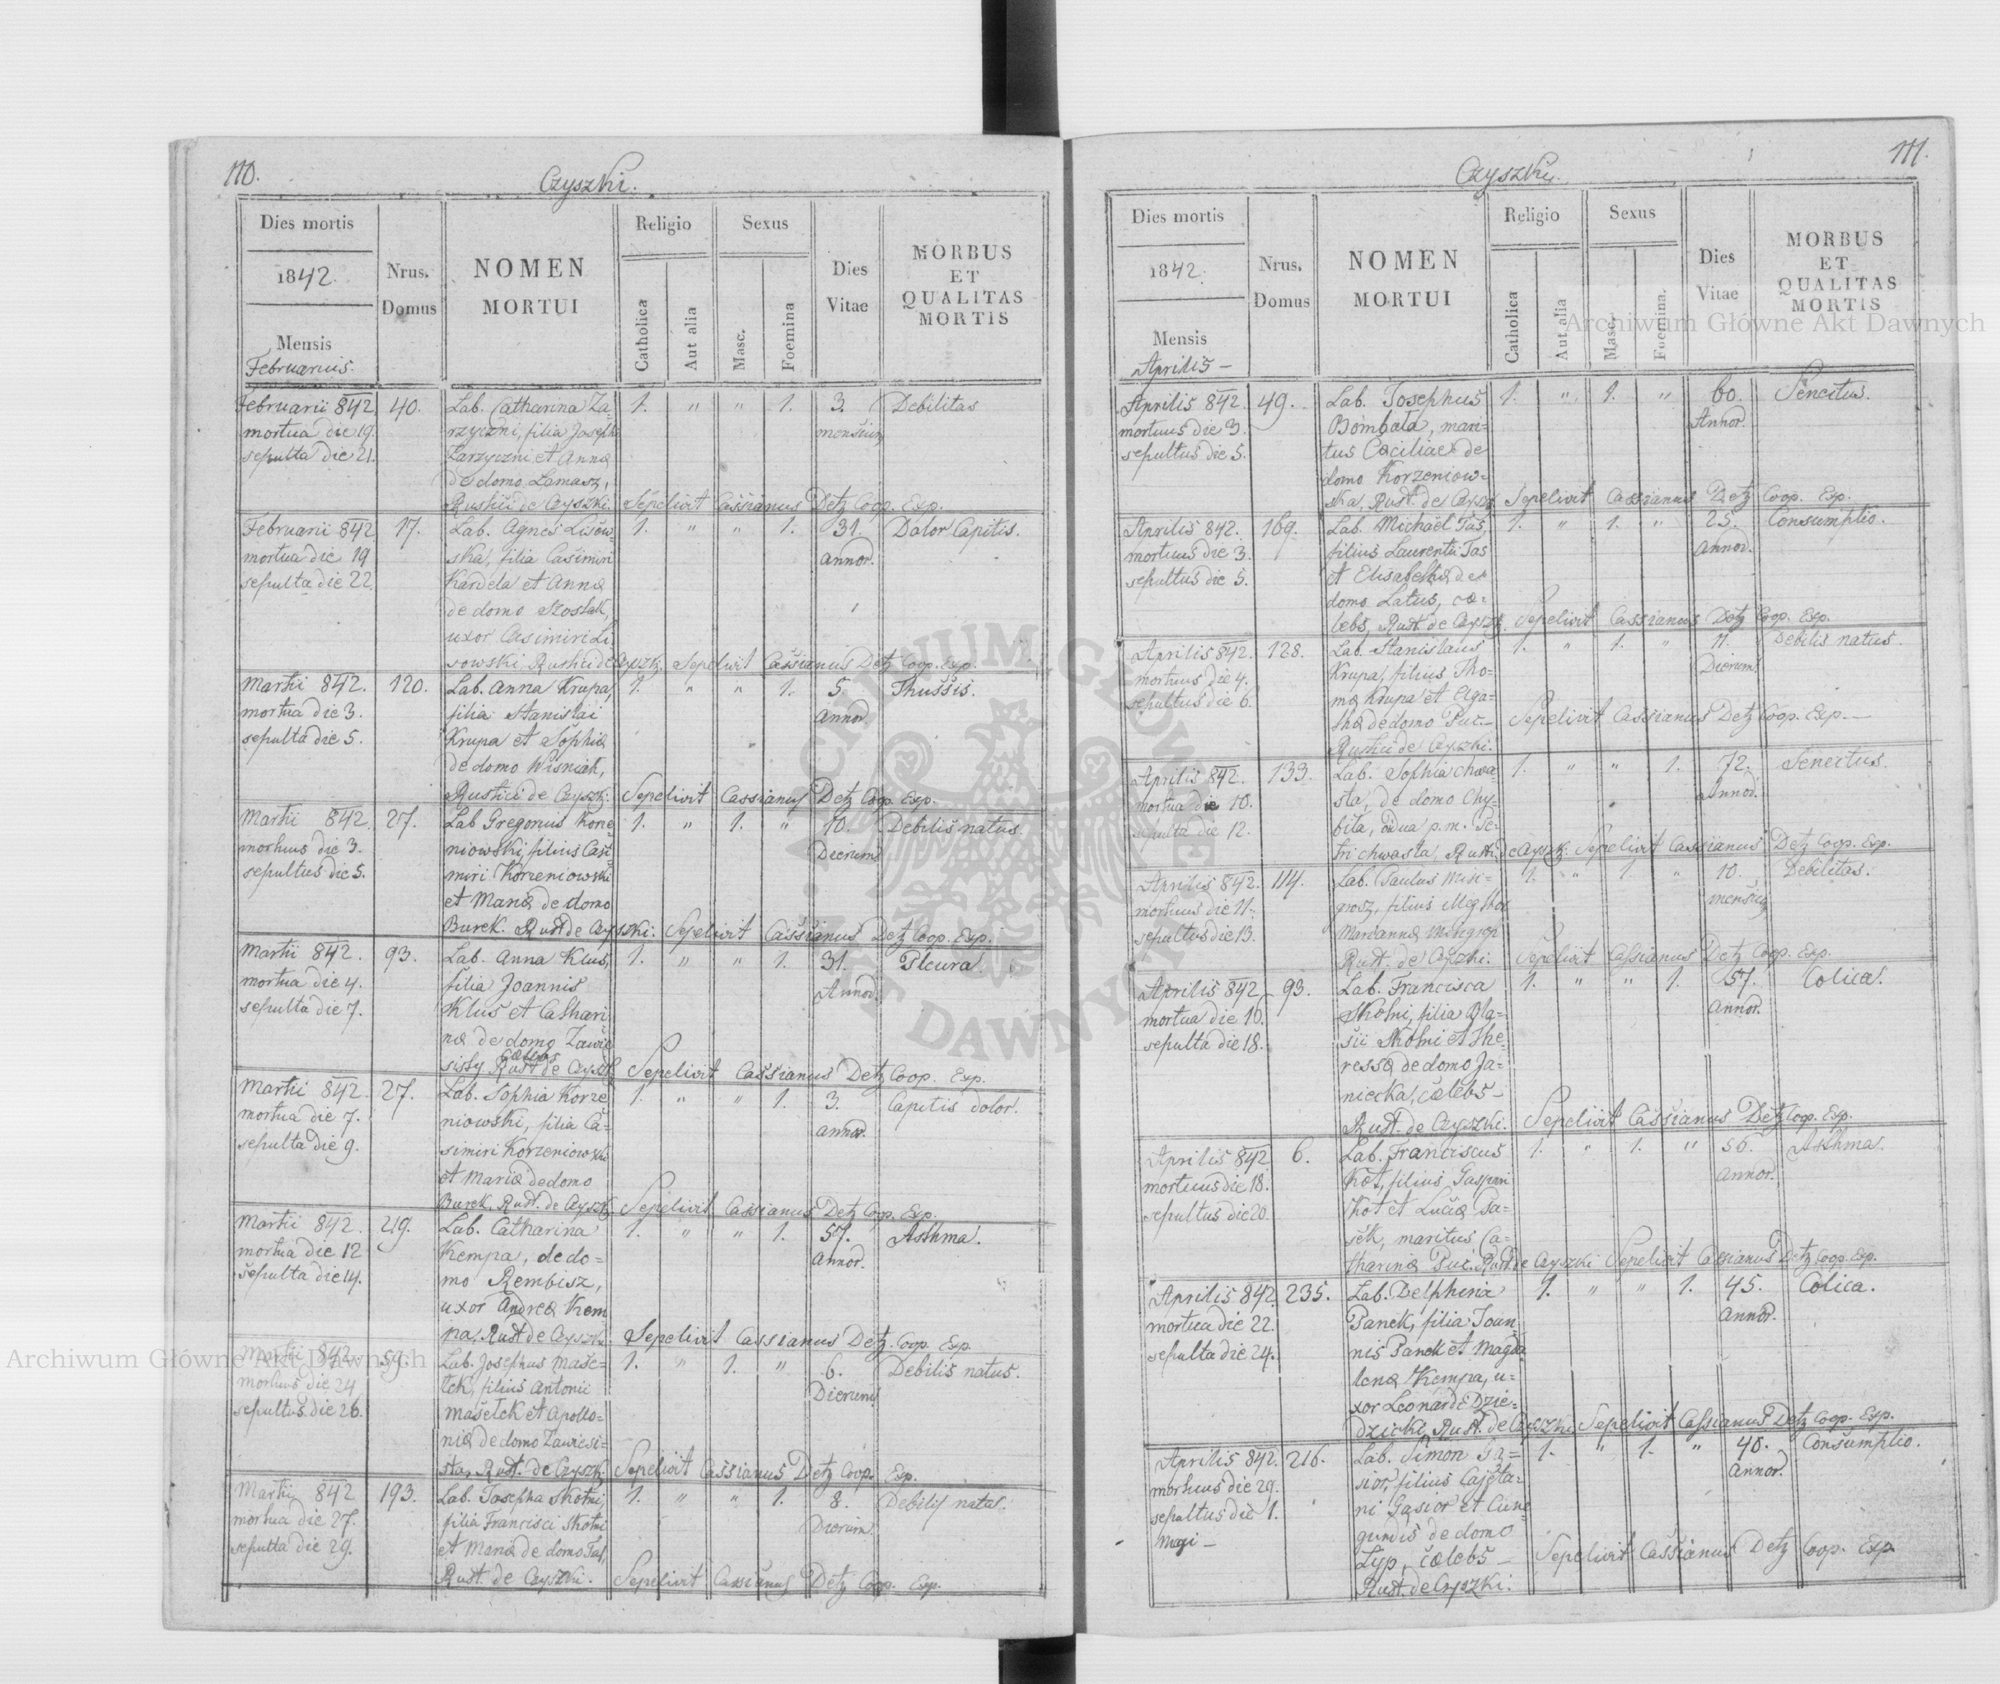 110.
Czyszki.
Dies mortis
1842.
Mensis
Februarius.
Nrus.
Domus
NOMEN
MORTUI
Religio
Catholica
Aut alia
Sexus
Masc.
Foemina
Dies
Vitae
MORBUS
ET
QUALITAS
MORTIS
Februarii 842 40. Lab. Catharina Za= 1. " " 1. 3. Debilitas
mortua die 19. rzyczni, filia Josephi mensium
sepulta die 21. Zarzyczni et Annæ
de domo Lamasz,
Rustici de Czyszki. Sepelivit Cassianus Detz Coop. Exp.
Februarii 842 17. Lab. Agnes Lisow= 1. " " 1. 31. Dolor Capitis.
mortua die 19 ska, filia Casimiri annor.
sepulta die 22. Kardela et Annæ
de domo Szostak,
uxor Casimiri Li
sowski Rustici de Czyszk. Sepelivit Cassianus Detz Coop. Exp.
Martii 842. 120. Lab. Anna Krupa, 1. " " 1. 5. Thussis.
mortua die 3. filia Stanislai annor.
sepulta die 5. Krupa et Sophiæ
de domo Wisniak,
Rustici de Czyszki. Sepelivit Cassianus Detz Coop. Exp.
Martii 842. 27. Lab Gregorius Korze 1. " 1. " 10. Debilis natus.
mortuus die 3. niowski, filius Casi= Dierum
sepultus die 5. miri Korzeniowski
et Mariæ de domo
Burek. Rust de Czyszki. Sepelivit Cassianus Detz Coop. Exp.
Martii 842. 93. Lab. Anna Klus, 1. " " 1. 31. Pleura.
mortua die 4. filia Joannis Annor.
sepulta die 7. Klus et Cathari
næ de domo Zawie
cælebs
sissy Rust de Czyszk Sepelivit Cassianus Detz Coop. Exp.
Martii 842. 27. Lab. Sophia Korze 1. " " 1. 3. Capitis dolor.
mortua die 7. niowski, filia Ca= annor.
sepulta die 9. simiri Korzeniowski
et Mariæ de domo
Burek, Rust. de Czyszk Sepelivit Cassianus Detz Coop. Exp.
Martii 842. 219. Lab. Catharina 1. " " 1. 57. Asthma.
mortua die 12 Kempa, de do= annor.
sepulta die 14. mo Rembisz,
uxor Andreæ Kem
pa, Rust de Czyszki. Sepelivit Cassianus Detz Coop. Exp.
Martii 842. 59. Lab. Josephus Masie= 1. " 1. " 6. Debilis natus.
mortuus die 24 łek, filius Antonii Dierum
sepultus die 26. Masełek et Apollo=
niæ de domo Zawiesi=
sta, Rust. de Czyszk. Sepelivit Cassianus Detz Coop. Exp.
Martii 842 193. Lab. Josepha Skotni, 1. " " 1. 8. Debilis nata.
mortua die 27. filia Francisci Skotni Dierum
sepulta die 29. et Mariæ de domo Tas,
Rust. de Czyszki. Sepelivit Cassianus Detz Coop. Exp.
111.
Czyszki.
Dies mortis
1842.
Mensis
Aprilis –
Nrus.
Domus
NOMEN
MORTUI
Religio
Catholica
Aut alia
Sexus
Masc.
Foemina.
Dies
Vitae
MORBUS
ET
QUALITAS
MORTIS
Aprilis 842. 49. Lab. Josephus 1. " 1. " 60. Senectus.
mortuus die 3. Bombała, mari= Annor.
sepultus die 5. tus Cæciliæ de
domo Korzeniow=
ska, Rust. de Czysz. Sepelivit Cassianus Detz Coop. Exp.
Aprilis 842. 169. Lab. Michael Tas, 1. " 1. " 25. Consumptio.
mortuus die 3. filius Laurentii Tas annor.
sepultus die 5. et Elisabethæ de
domo Latus, cæ=
lebs, Rust. de Czyszk. Sepelivit Cassianus Detz Coop. Exp.
Aprilis 842. 128. Lab. Stanislaus 1. " 1. " 11. Debilis natus.
mortuus die 4. Krupa, filius Tho= Dierum
sepultus die 6. mæ Krupa et Aga=
thæ de domo Puc. – Sepelivit Cassianus Detz Coop. Exp. –
Rustici de Czyszki.
Aprilis 842. 133. Lab. Sophia Chwa= 1. " " 1. 72. Senectus.
mortua die 10. sta, de domo Chy= Annor.
sepulta die 12. biła, vidua p. m. Pe=
tri Chwasta, Rust. de Czyszk. Sepelivit Cassianus Detz Coop. Exp.
Aprilis 842. 114. Lab. Paulus 1. " 1. " 10. Debilitas.
mortuus die 11. filius mensium
sepultus die 13. Mariannæ
Rust. de Czyszki. Sepelivit Cassianus Detz Coop. Exp.
Aprilis 842 93. Lab. Francisca 1. " " 1. 57. Colica.
mortua die 16. Skotni, filia Bla= annor.
sepulta die 18. sii Skotni et The=
ressæ de domo Ja=
niecka, cælebs –
Rust. de Czyszki. Sepelivit Cassianus Detz Coop. Exp.
Aprilis 842 6. Lab. Franciscus 1. " 1. " 56. Asthma.
mortuus die 18. Kot, filius Gaspari annor.
sepultus die 20. Kot et Luciæ Pa=
sek, maritus Ca=
tharinæ Puc. Rust. de Czyszki Sepelivit Cassianus Detz Coop. Exp.
Aprilis 842. 235. Lab. Delphina 1. " " 1. 45. Colica.
mortua die 22. Panek, filia Joan= annor.
sepulta die 24. nis Panek et Magda
lenæ Kempa, u=
xor Leonardi Dzie=
dzicki, Rust. de Czyszki Sepelivit Cassianus Detz Coop. Exp.
Aprilis 842. 216. Lab. Simon Gą= 1. " 1. " 40. Consumptio.
mortuus die 29. sior, filius Cajeta= annor.
sepultus die 1. ni Gąsior et Cune
Maji – gundis de domo
Lyp, cælebs – Sepelivit Cassianus Detz Coop. Exp
Rust. de Czyszki.
Archiwum Główne Akt Dawnych
Archiwum Główne Akt Dawnych
ARCHIWUM GŁÓWNE AKT DAWNYCH